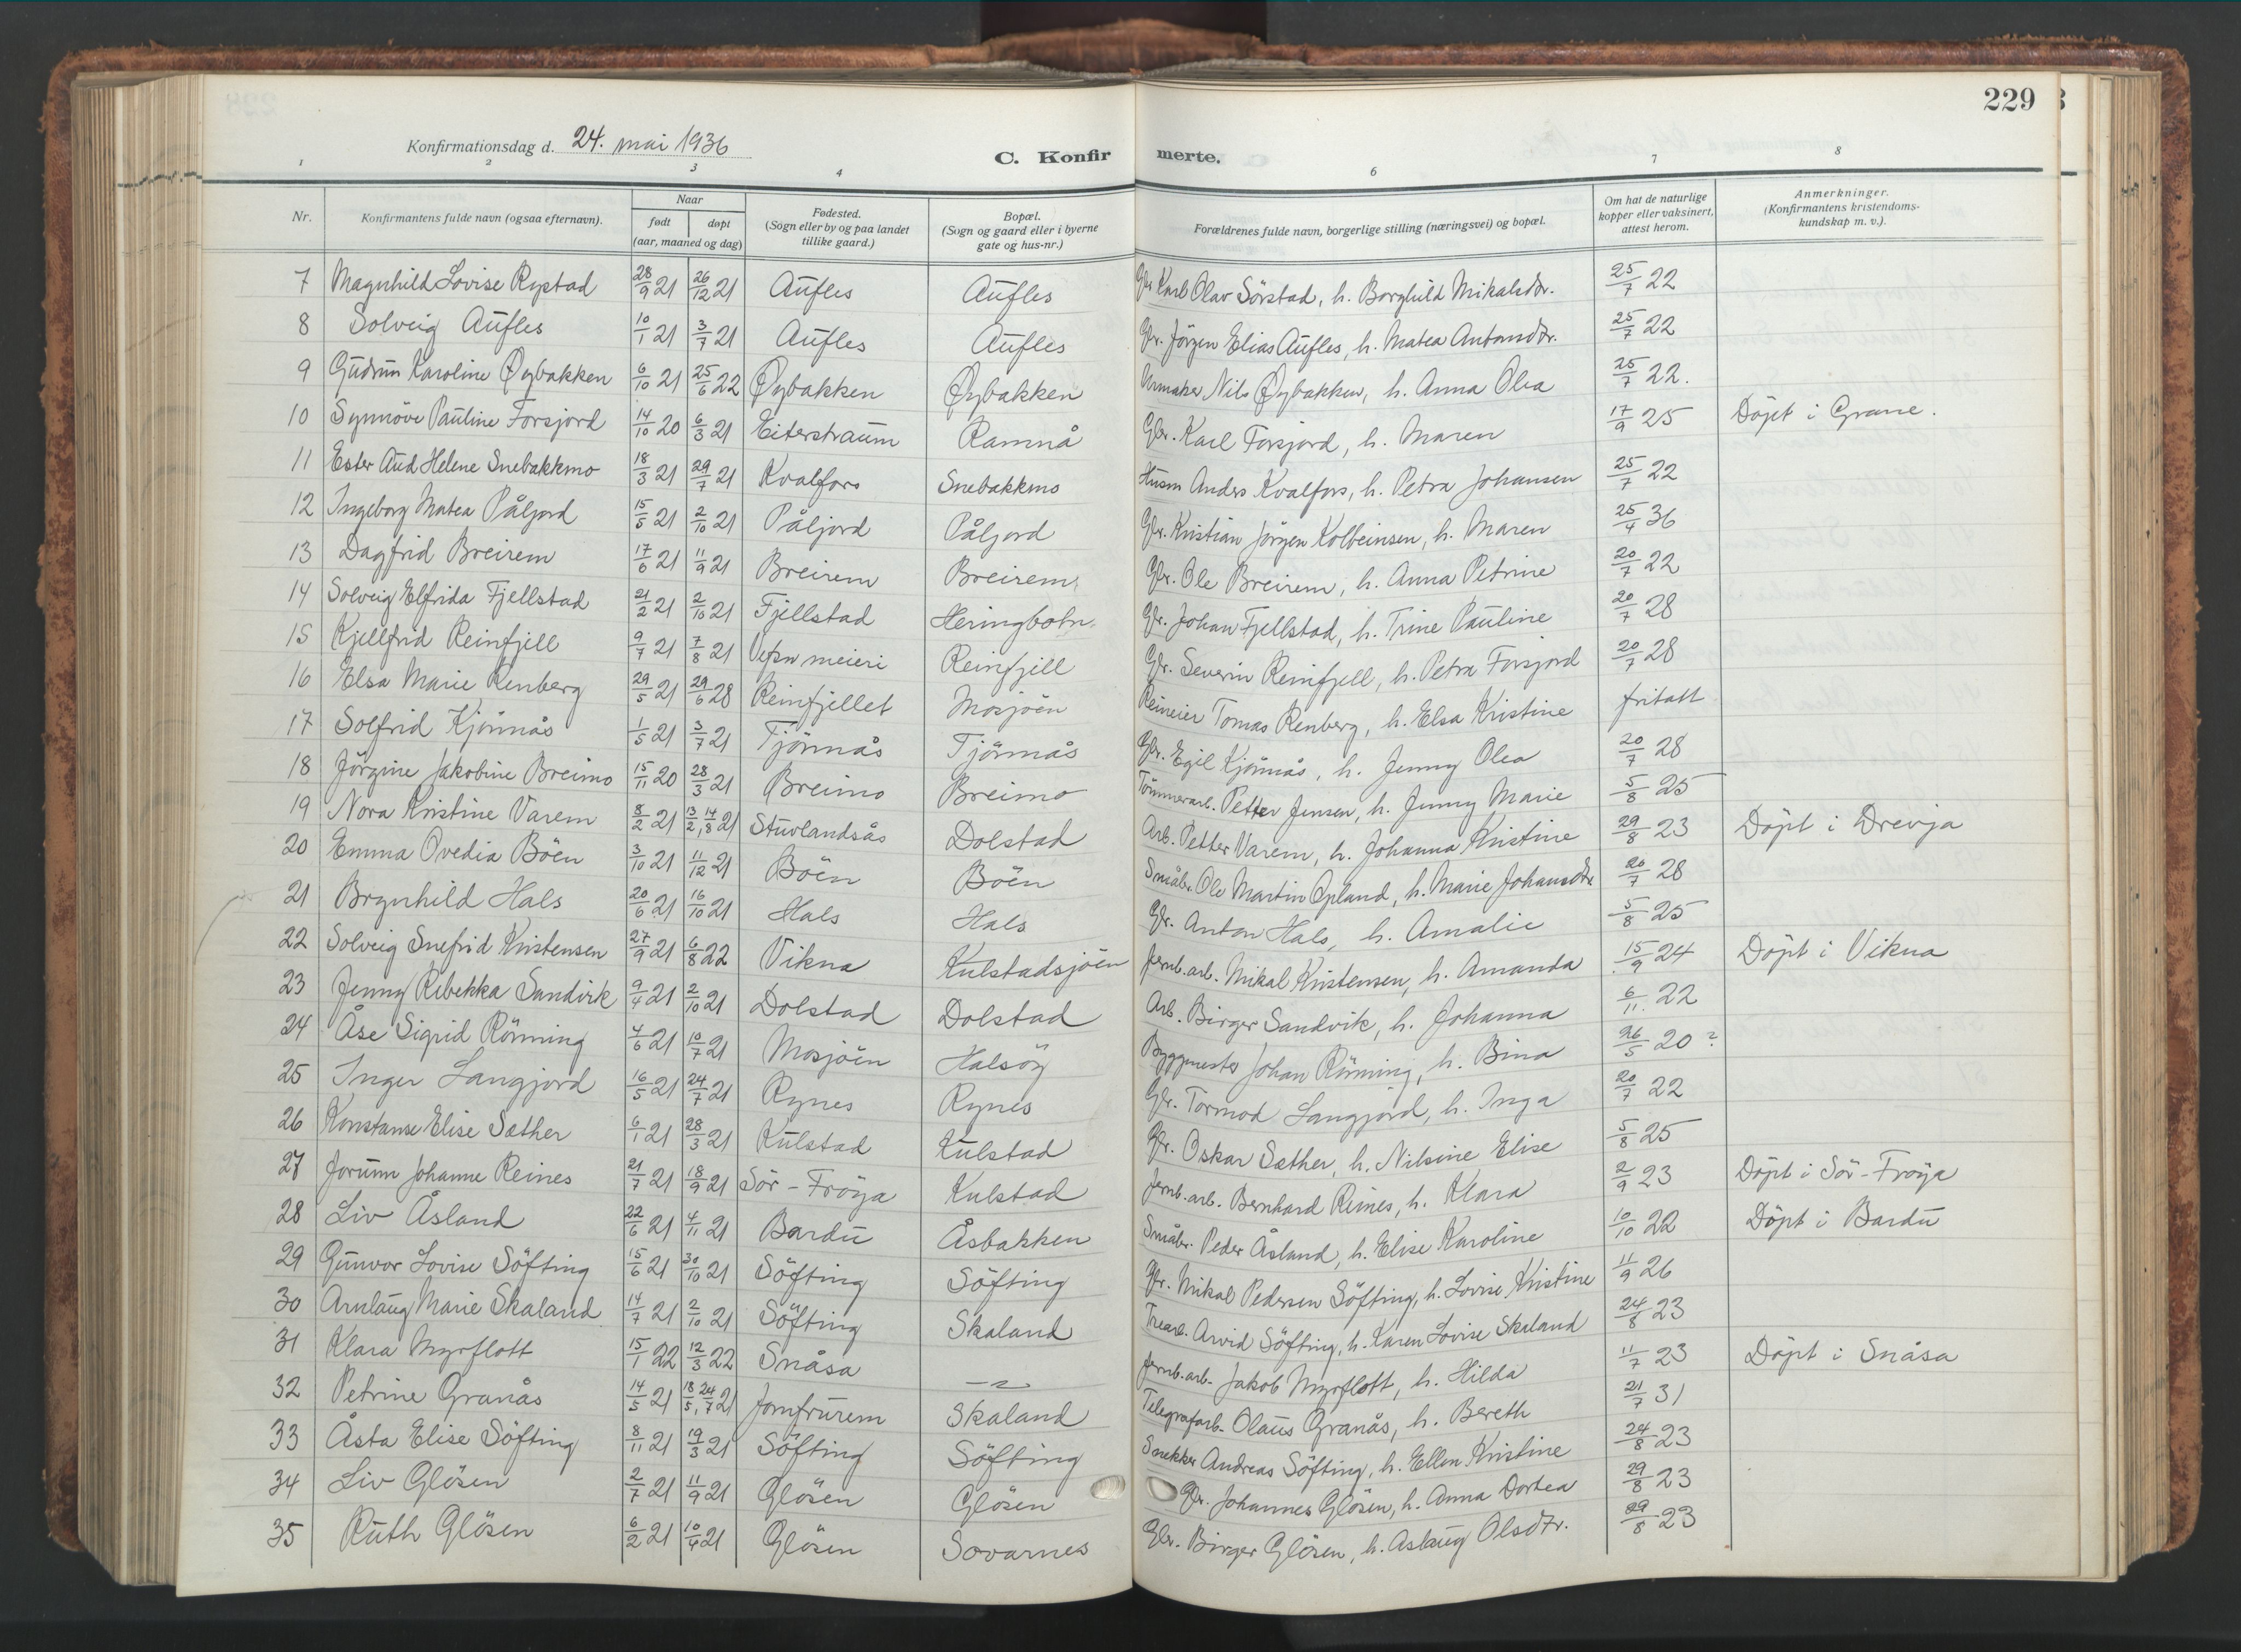 229
Konfirmationsdag d. 24. mai 1936
C. Konfirmerte.
1 2 3 4 6 7 8
Nr. Konfirmantens fulde navn (ogsaa efternavn). Naar født døpt (aar, maaned og dag) Fødested. (Sogn eller by og paa landet tillike gaard.) Bopæl. (Sogn og gaard eller i byerne gate og hus-nr.) Forældrenes fulde navn, borgerlige stilling (næringsvei) og bopæl. Om hat de naturlige kopper eller vaksinert, attest herom. Anmerkninger. (Konfirmantens kristendoms-kundskap m. v.).
7 Magnhild Lovise Rystad 28/9 21 26/12 21 Aufles Aufles Gbr Karl Olav Sörstad, h. Borghild Mikalsdtr. 25/7 22
8 Solveig Aufles 10/1 21 3/7 21 Aufles Aufles Gbr. Jörgen Elias Aufles, h. Matea Antonsdtr. 25/7 22
9 Gudrun Karoline Øybakken 6/10 21 25/6 22 Øybakken Øybakken Urmaker Nils Øybakken, h. Anna Olea 25/7 22.
10 Synnöve Pauline Forsjord 14/10 20 6/3 21 Eiterstraum Ramnå Gbr. Karl Forsjord, h. Maren 17/9 25 Döpt i Grane.
11 Ester Aud Helene Snebakkmo 18/3 21 29/7 21 Kvalfors Snebakkmo Husm Anders Kvalfors, h. Petra Johansen 25/7 22
12 Ingeborg Matea Påljord 15/5 21 2/10 21 Påljord Påljord Gbr. Kristian Jörgen Kolbeinsen, h. Maren 25/4 36
13 Dagfrid Breirem 17/6 21 11/9 21 Breirem Breirem Gbr. Ole Breirem, h. Anna Petrine 20/7 22
14 Solveig Elfrida Fjellstad 21/2 21 2/10 21 Fjellstad Heringbotn. Gbr. Johan Fjellstad, h. Trine Pauline 20/7 28
15 Kjellfrid Reinfjell 9/7 21 7/8 21 Vefsn meieri Reinfjell Gbr. Severin Reinfjell, h. Petra Forsjord 20/7 28
16 Elsa Marie Renberg 29/5 21 29/6 28 Reinfjellet Mosjöen Reineier Tomas Renberg, h. Elsa Kristine fritatt
17 Solfrid Kjönnås 1/5 21 3/7 21 Tjönnås Tjönnås Gbr. Egil Kjönnås, h. Jenny Olea 20/7 28
18 Jörgine Jakobine Breimo 15/11 20 28/3 21 Breimo Breimo Tömmerarb. Petter Jensen, h. Jenny Marie 5/8 25
19 Nora Kristine Varem 8/2 21 13/2, 14/8 21 Stuvlandsås Dolstad Arb. Petter Varem, h. Johanna Kristine 29/8 23 Döpt i Drevja
20 Emma Ovedia Böen 3/10 21 11/12 21 Böen Böen Småbr. Ole Martin Opland, h. Marie Johansdtr 20/7 28
21 Brynhild Hals 20/6 21 16/10 21 Hals Hals Gbr. Anton Hals, h. Amalie 5/8 25
22 Solveig Snefrid Kristensen 27/9 21 6/8 22 Vikna Kulstadsjöen Jernb.arb. Mikal Kristensen, h. Amanda 15/9 24 Döpt i Vikna
23 Jenny Rebekka Sandvik 9/4 21 2/10 21 Dolstad Dolstad Arb. Birger Sandvik, h. Johanna 6/11. 22
24 Åse Sigrid Rönning 4/6 21 10/7 21 Mosjöen Halsöy Byggmester Johan Rönning, h. Bina 26/5 20 ?
25 Inger Langjord 16/5 21 24/7 21 Rynes Rynes Gbr. Tormod Langjord, h. Inga 20/7 22
26 Konstanse Elise Sæther 6/1 21 28/3 21 Kulstad Kulstad Gbr. Oskar Sæther, h. Nilsine Elise 5/8 25
27 Jorunn Johanne Reines 21/7 21 18/9 21 Sör-Fröya Kulstad Jernb.arb. Bernhard Reines, h. Klara 2/9 23 Döpt i Sör-Fröya
28 Liv Åsland 22/6 21 4/11 21 Bardu Åsbakken Småbr. Peder Åsland, h. Elise Karoline 10/10 22 Döpt i Bardu
29 Gunvor Lovise Söfting 15/6 21 30/10 21 Söfting Söfting Gbr. Mikal Pedersen Söfting, h. Lovise Kristine 11/9 26
30 Arnlaug Marie Skaland 14/7 21 2/10 21 Söfting Skaland Trearb. Arvid Söfting, h. Karen Lovise Skaland 24/8 23
31 Klara Myrflott 15/1 22 12/3 22 Snåsa —"— Jernb.arb. Jakob Myrflott, h. Hilda 11/7 23 Döpt i Snåsa
32 Petrine Granås 14/5 21 18/5, 24/7 21 Jomfrurem Skaland Telegrafarb. Olaus Granås, h. Bereth 21/7 31
33 Åsta Elise Söfting 8/11 21 19/3 21 Söfting Söfting Snekker Andreas Söfting, h. Ellen Kristine 24/8 23
34 Liv Glösen 2/7 21 11/9 21 Glösen Glösen Gbr. Johannes Glösen, h. Anna Dortea 29/8 23
35 Ruth Glösen 6/2 21 10/4 21 Glösen Sovarnes Gbr. Birger Glösen, h. Aslaug Olsdtr. 29/8 23